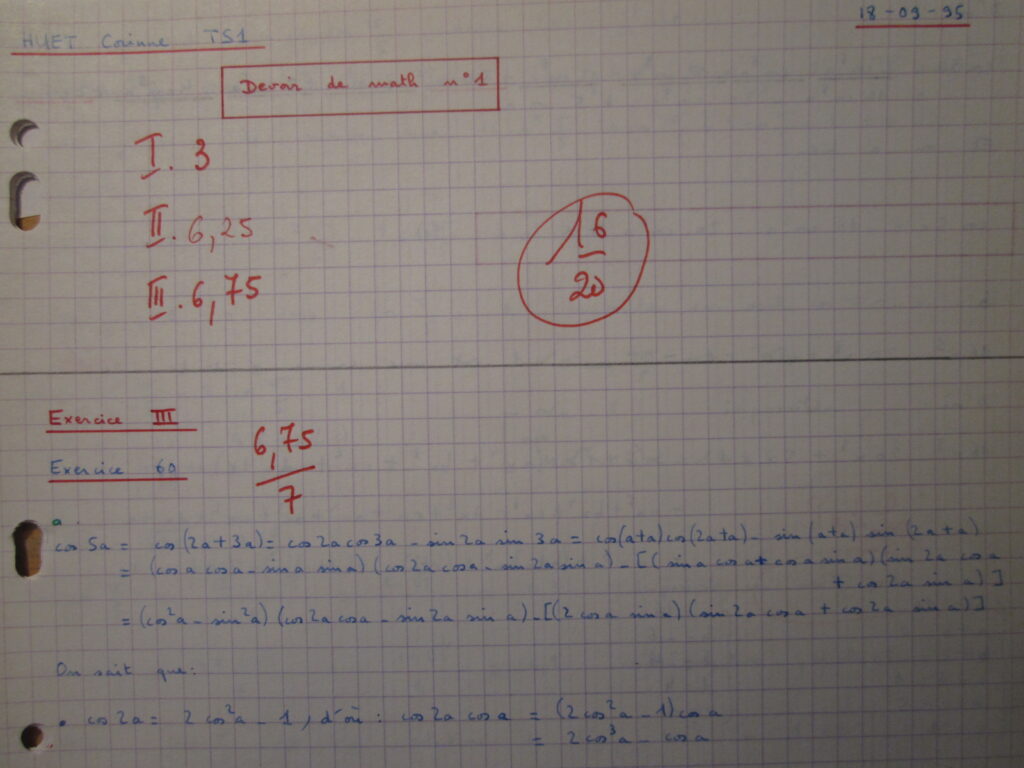 18-09-95
HUET Corinne TS1
Devoir de math n°1
I. 3
II. 6,25
III. 6,75
16
20
Exercice III
6,75
7
Exercice 60
a.
cos 5a = cos(2a+3a) = cos2a cos3a - sin2a sin 3a = cos(a+a) cos(2a+a) - sin(a+a) sin(2a+a)
= (cosa cosa - sina sina) (cos2a cosa - sin2a sina) - [(sina cosa + cosa sina) (sin 2a cosa
+ cos 2a sin a)]
= (cos²a - sin²a) (cos2a cosa - sin2a sin a) - [(2 cosa sina) (sin2a cosa + cos2a sin a)]
On sait que:
• cos2a = 2 cos²a - 1, d'où : cos2a cosa = (2cos²a - 1) cos a
= 2cos³a - cosa